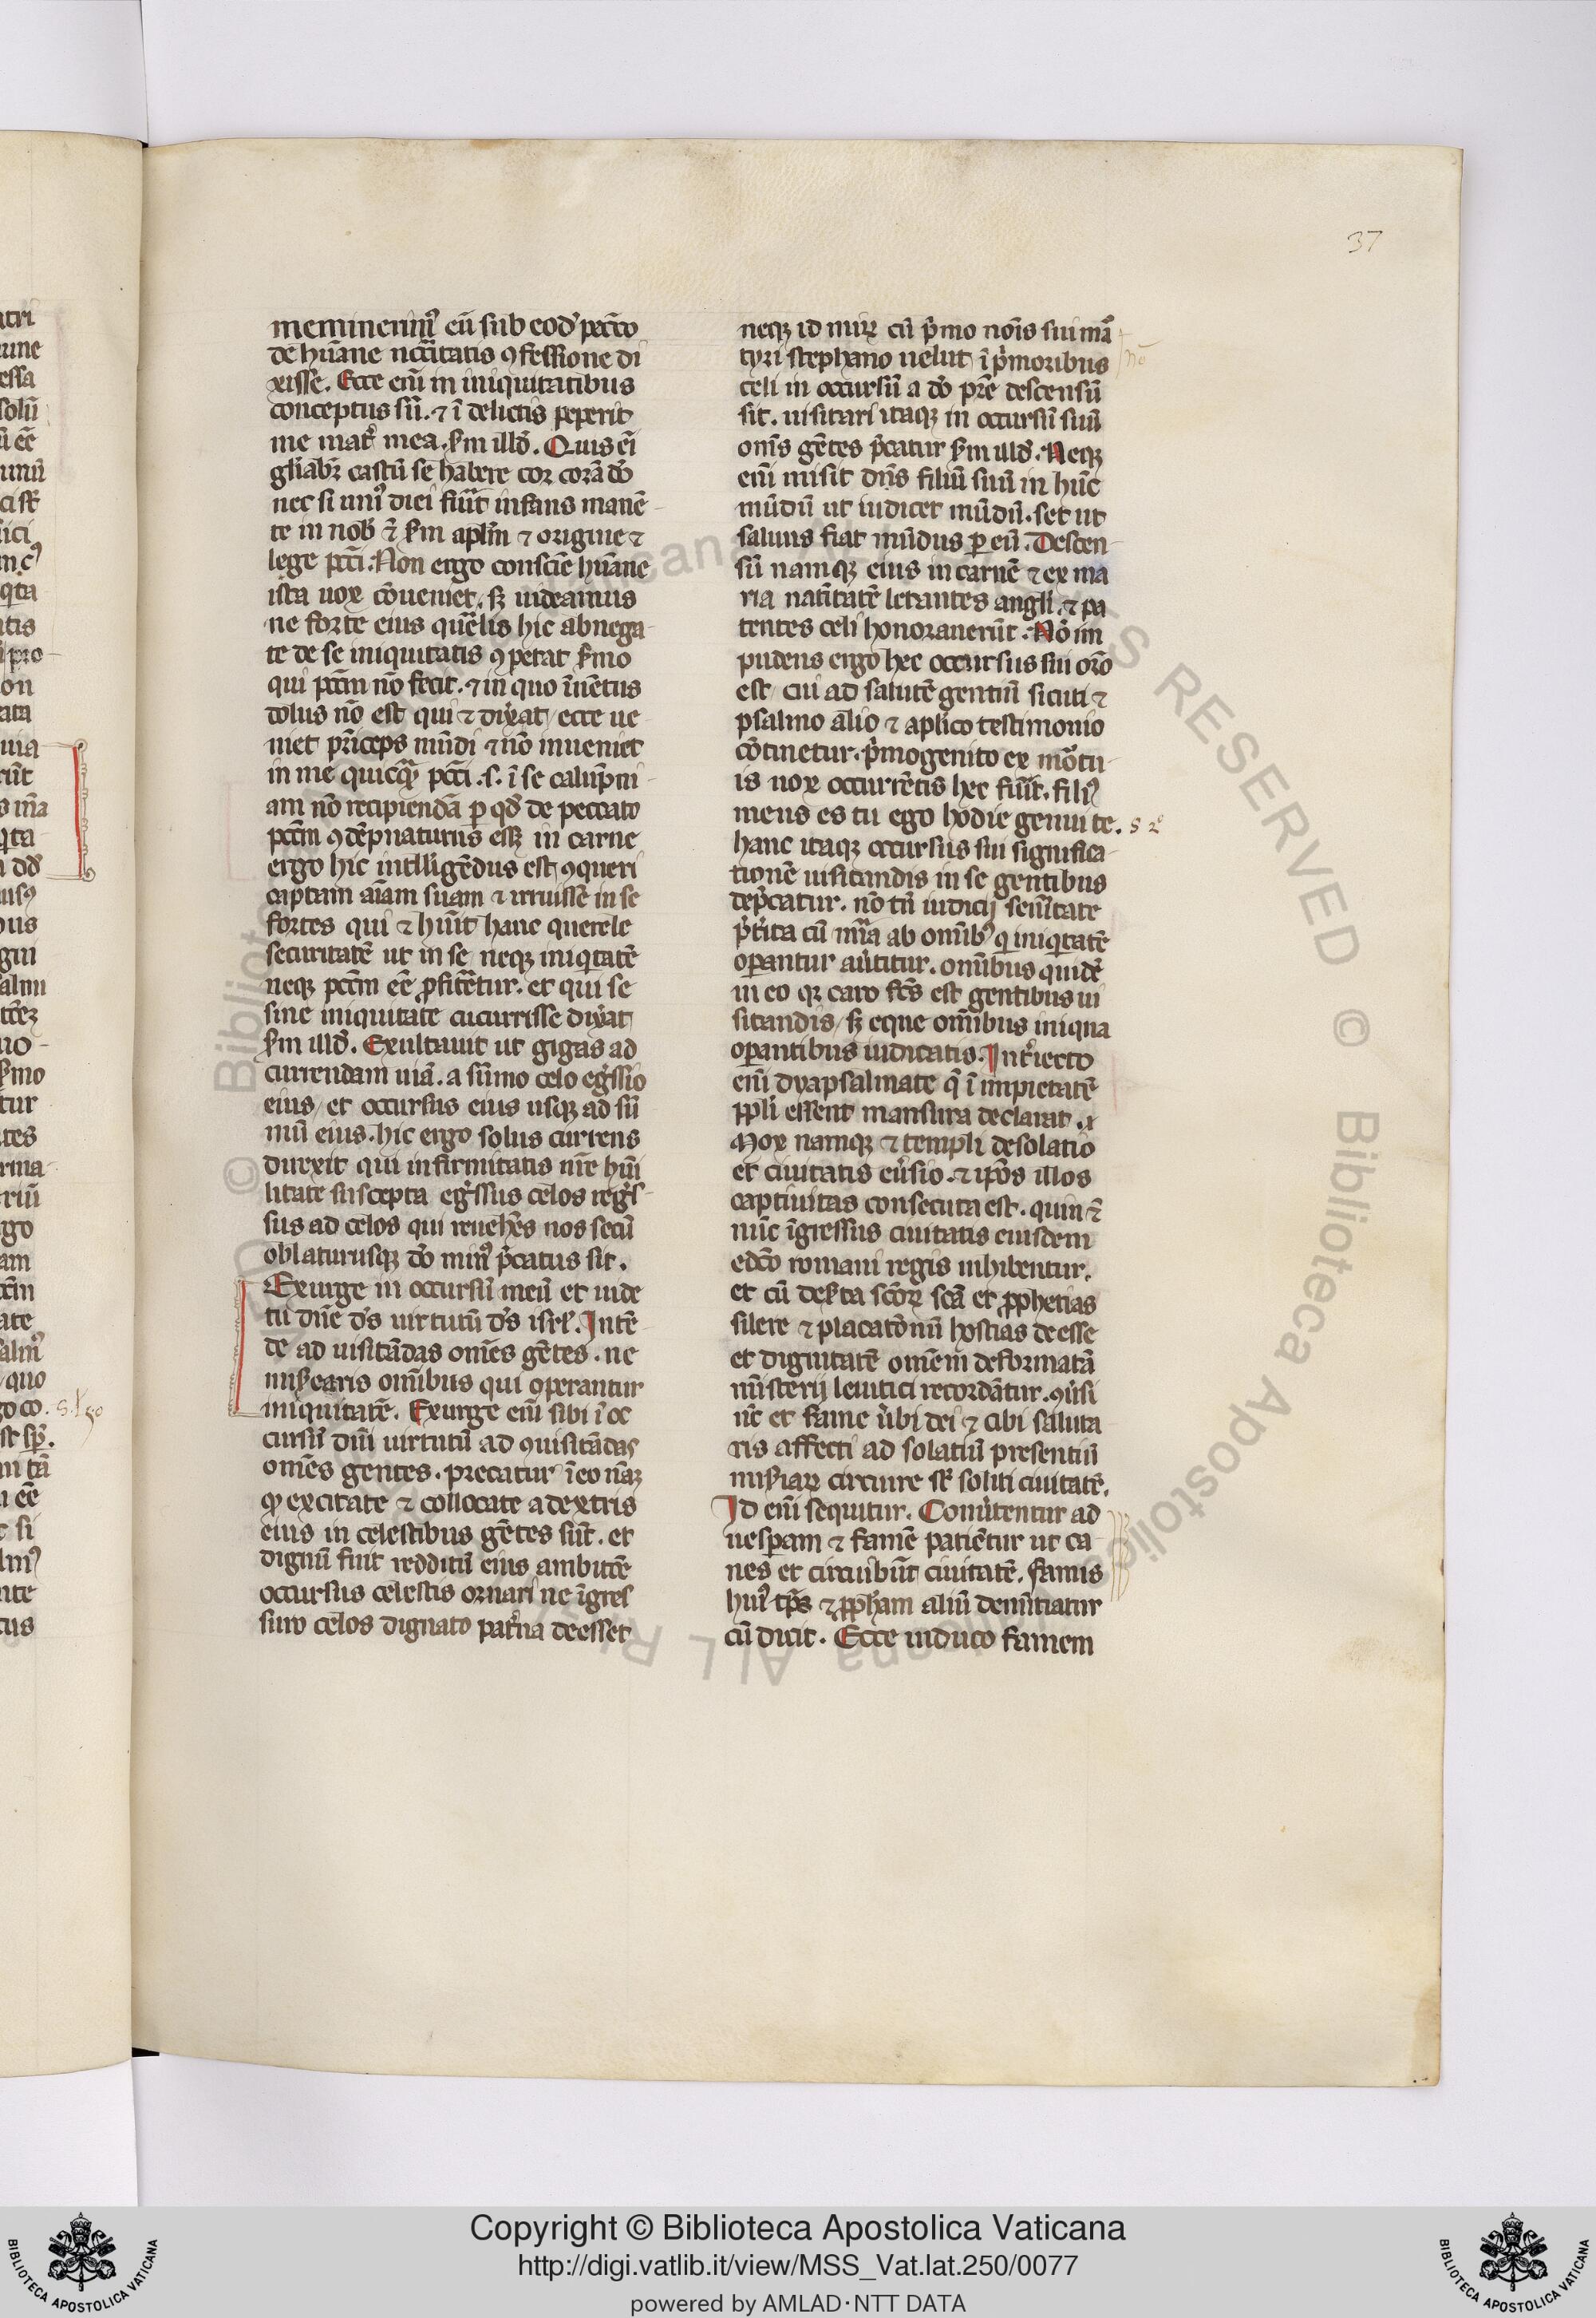 37
meminerim⁹ eū sub eod̄ pccōo
de hūane nccītatis ꝯfessione di
xisse. Ecce eni᷈ in iniquitatibus
conceptus sū. ⁊ ī delictis peperit
me mat᷑ mea. s̄m illd̄. Quis ei᷈
gl̄iabr̄ castū se habere cor corā dō
nec si uni⁹ diei fiūt infans manē
te in nob̄ ⁊̄ s̄m apl̄m ⁊ origine ⁊
lege pcc̄i. Non ergo consciē hūane
ista uox cōueniet. sꝫ uideamus
ne forte eius quelis hic abnega
te de se iniquitatis ꝯpetat s̄mo
qui pcc̄m nō fecit. ⁊ in quo īuētus
dolus nō est qui ⁊ dix̄at ecce ue
niet p̄nceps mūdi ⁊ nō inueniet
in me quicq̄ pcc̄i .s. ī se calūpni
am nō recipiendā p qd̄ de peccato
pcc̄m ꝯdēpnaturus essꝫ in carne
ergo hic intelligēdus est ꝯqueri
captam aīam suam ⁊ irruisse in se
fortes qui ⁊ hūit hanc querele
securitatē ut in se neqꝫ iniqͥtatē
neqꝫ pcc̄m eē ꝓfitētur. et qui se
sine iniquitate cucurrisse dix̄at
s̄m illd̄. Exultauit ut gigas ad
currendam uiā. a sūmo celo eg̃ssio
eius, et occursus eius usqꝫ ad sū
mū eius. hic ergo solus currens
direxit qui infirmitatis nr̄e hūi
litate suscepta eg̃ssus celos reg̃s
sus ad celos qui reuehēs nos secū
oblaturusqꝫ dō min⁹ p̄catus sit.
Exurge in occursū meū et uide
tu dn̄e d̄s uirtutū d̄s isrl̄. Intē
de ad uisitādas omēs gētes. ne
mis̄earis omībus qui operantur
iniquitatē. Exurge eni᷈ sibi ī oc
cursū dn̄i uirtutū ad ꝯuisitādas
omēs gentes. precatur ī eo nāꝫ
qꝫ excitate ⁊ collocate a dextris
eius in celestibus gētes sūt. et
dignū fuit redditū eius ambitōe
occursus celestis ornari ne īgres
suro celos dignato pat᷑na deesset
neqꝫ id mirꝝ cū p̄mo nōis sui mā
tyri stephano uelut ī p̄moribus
celi in occursū a dō pr̄e descensū
sit. uisitari itaqꝫ in occursū suū
omīs gētes p̄catur s̄m illd̄. Neqꝫ
eni᷈ misit dn̄s filiū suū in hūc
mūdū ut iudicet mūdū. set ut
saluus fiat mūdus p eū. Descen
sū namqꝫ eius in carnē ⁊ ex ma
ria natītatē letantes angli ⁊ pa
tentes celi honorauerūt. Nō im
pudens ergo hec occursus sui orō
est, cū ad salutē gentiū sicuti ⁊
psalmo alio ⁊ apl̄ico testimonio
cōtinetur. p̄mogenito ex mōtu
is uox occurrētis hec fuīt. fili⁹
meus es tu ego hodie genui te.
hanc itaqꝫ occursus sui significa
tionē uisitandis in se gentibus
dep̄catur. nō tn̄ iudicij seūitate
p̄tita cū mīa ab omībꝫ q iniqͥtatē
operantur au᷑titur. omībus quidē
in eo qꝫ caro fcs̄ est gentibus ui
sitandis, sꝫ eque omībus iniqua
operantibus iudicatis. Int᷑iecto
eni᷈ dyapsalmate q̄ ī impietatē
pp̄li essent mansura declarat.
Mox namqꝫ ⁊ templi desolatio
et ciuitatis eu᷑sio. ⁊ ip̄os illos
captiuitas consecuta est. quin ⁊̄
nūc īgressus ciuitatis eiusdem
edcō romani regis inhibentur.
et cū des̄ta scōrꝝ scā et ꝓphetias
silere ⁊ placatōnū hostias deesse
et dignitatē omēm deformatā
mīsterij leuitici recordātur. ꝯu᷑si
nc̄ et fame u᷑bi dei ⁊ cibi saluta
ris affecti ad solatiū presentiū
mis̄iarꝝ circuire sr̄ soliti ciuitatē.
Id eni᷈ sequitur. Conu᷑tentur ad
uesperam ⁊ famē patiētur ut ca
nes et circuibūt ciuitatē. famis
hui⁹ tp̄s ⁊ ꝓph̄am aliū denūtiatur
cū dicit. Ecce induco famem
Copyright © Biblioteca Apostolica Vaticana
http://digi.vatlib.it/view/MSS_Vat.lat.250/0077
powered by AMLAD·NTT DATA
BIBLIOTECA APOSTOLICA VATICANA
BIBLIOTECA APOSTOLICA VATICANA